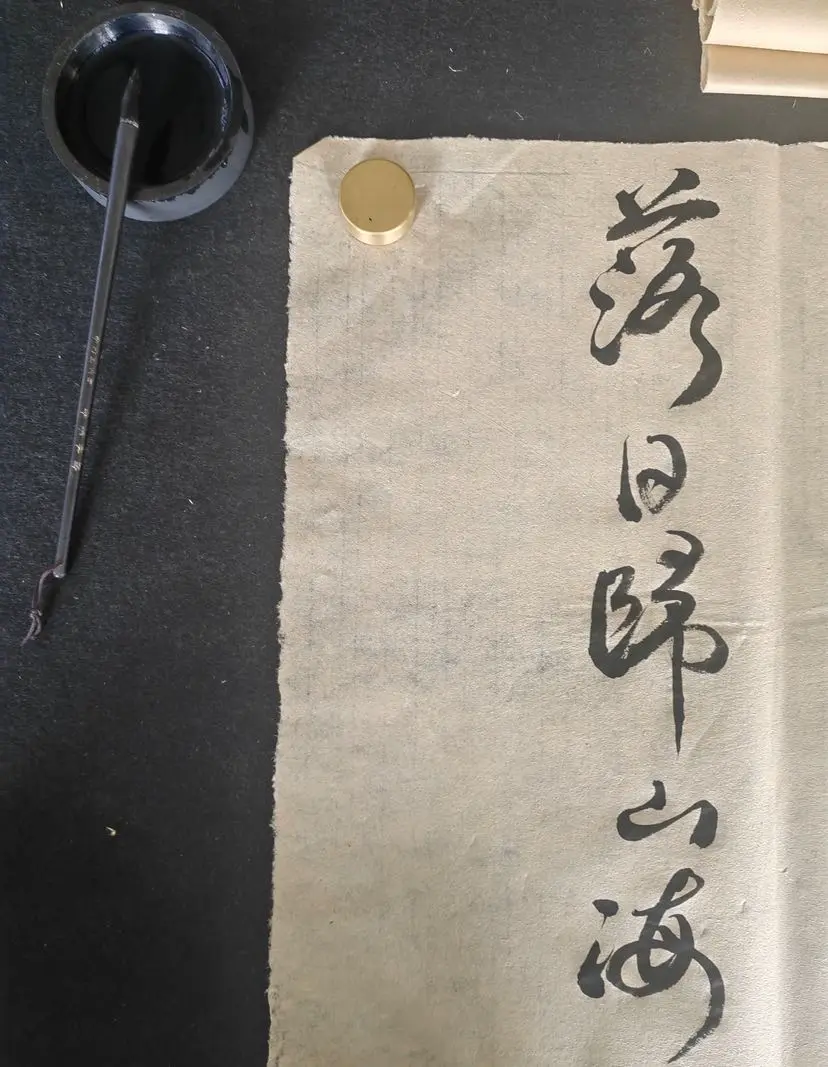 落日歸山海